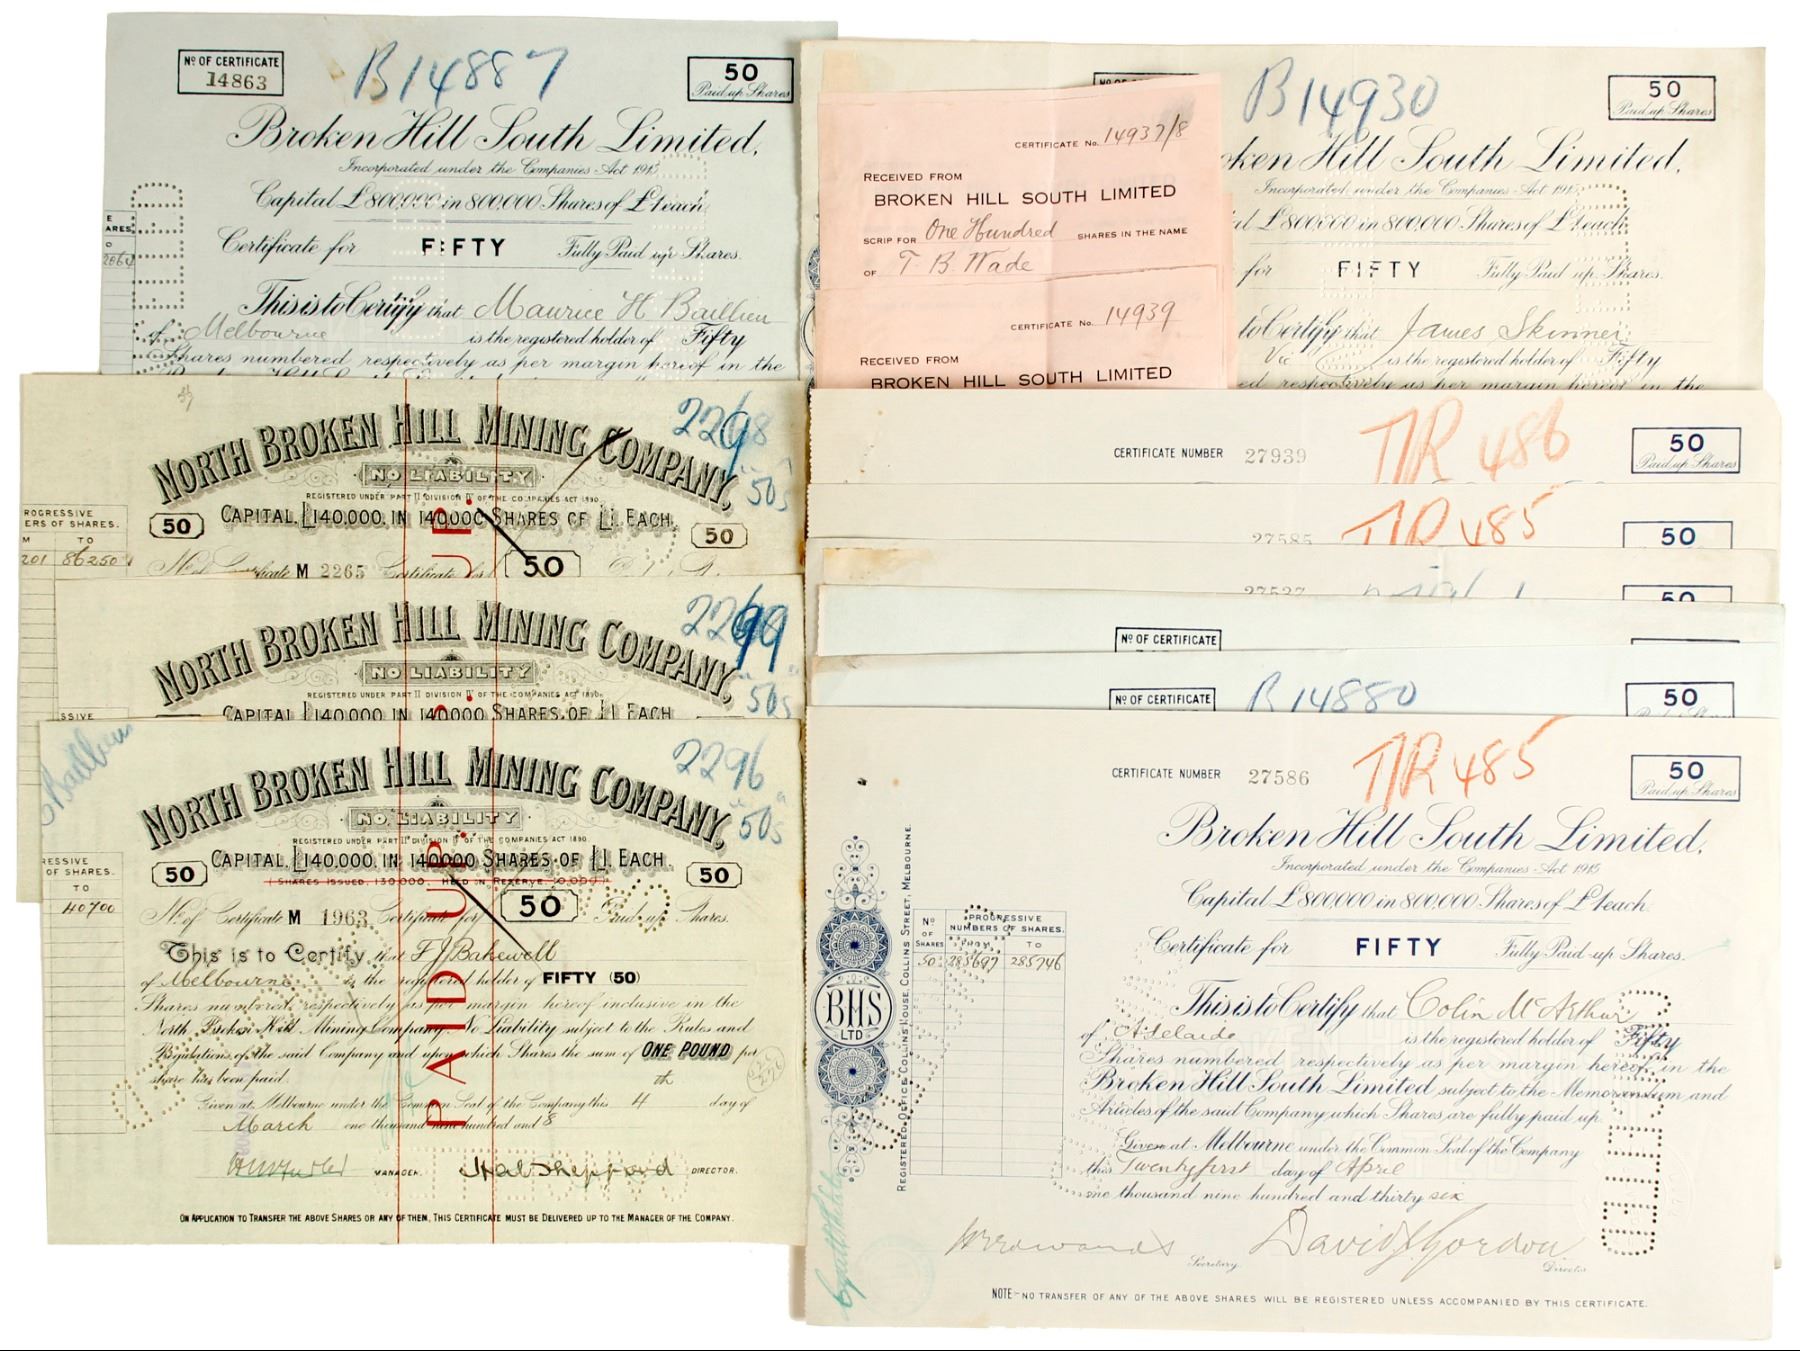 Nº OF CERTIFICATE
14863
B14887
50
Paid up Shares
Broken Hill South Limited.
Incorporated under the Companies Act 1915
Capital £800,000 in 800,000 Shares of £1 each
Certificate for FIFTY Fully Paid up Shares.
This is to Certify that Maurice H Baillieu
of Melbourne is the registered holder of Fifty
Shares numbered respectively as per margin hereof in the
B14930
50
Paid up Shares
oken Hill South Limited.
Incorporated under the Companies Act 191
al £800,000 in 800,000 Shares of £1 each
for FIFTY Fully Paid up Shares.
to Certify that James Skinner
Vic is the registered holder of Fifty
ed respectively as per margin hereof in the
CERTIFICATE No. 14937/8
RECEIVED FROM
BROKEN HILL SOUTH LIMITED
SCRIP FOR One Hundred SHARES IN THE NAME
OF T. B. Wade
CERTIFICATE No. 14939
RECEIVED FROM
BROKEN HILL SOUTH LIMITED
2298
"50s
NORTH BROKEN HILL MINING COMPANY,
NO LIABILITY
REGISTERED UNDER PART II DIVISION II OF THE COMPANIES ACT 1890
50 CAPITAL, £140,000, IN 140,000 SHARES OF £1. EACH. 50
ROGRESSIVE
ERS OF SHARES.
M TO
201 86250
No. of Certificate M 2265 Certificate for 50
2299
"50s
NORTH BROKEN HILL MINING COMPANY,
NO LIABILITY
REGISTERED UNDER PART II DIVISION II OF THE COMPANIES ACT 1890
CAPITAL £140,000 IN 140,000 SHARES, OF £1 EACH
SSIVE
2296
"50s"
NORTH BROKEN HILL MINING COMPANY,
NO LIABILITY
REGISTERED UNDER PART II DIVISION II OF THE COMPANIES ACT 1890
50 CAPITAL, £140,000, IN 140,000 SHARES OF £1. EACH. 50
(SHARES ISSUED, 130,000, HELD IN RESERVE, 10,000)
RESSIVE
OF SHARES.
TO
40700
No. of Certificate M 1963 Certificate for 50 Paid up Shares.
This is to Certify that F J Bakewell
of Melbourne is the registered holder of FIFTY (50)
Shares numbered respectively as per margin hereof inclusive in the
North Broken Hill Mining Company, No Liability subject to the Rules and
Regulations of the said Company and upon which Shares the sum of ONE POUND per
share has been paid.
Given at Melbourne under the Common Seal of the Company this 4th day of
March one thousand nine hundred and 8
MANAGER. DIRECTOR.
PAID UP.
ON APPLICATION TO TRANSFER THE ABOVE SHARES OR ANY OF THEM, THIS CERTIFICATE MUST BE DELIVERED UP TO THE MANAGER OF THE COMPANY.
CERTIFICATE NUMBER 27939 T/R 486
50
Paid up Shares
27585 T/R 485
50
27527
50
Nº OF CERTIFICATE
Nº OF CERTIFICATE B 14880
50
CERTIFICATE NUMBER 27586 T/R 485
50
Paid up Shares
Broken Hill South Limited.
Incorporated under the Companies Act 1915
Capital £800000 in 800,000 Shares of £1 each
Certificate for FIFTY Fully Paid up Shares.
This is to Certify that Colin McArthur
of Adelaide is the registered holder of Fifty
Shares numbered respectively as per margin hereof in the
Broken Hill South Limited subject to the Memorandum and
Articles of the said Company which Shares are fully paid up.
Given at Melbourne under the Common Seal of the Company
this Twenty first day of April
one thousand nine hundred and thirty six
David J Gordon
Secretary. Director
NOTE - NO TRANSFER OF ANY OF THE ABOVE SHARES WILL BE REGISTERED UNLESS ACCOMPANIED BY THIS CERTIFICATE.
Nº OF SHARES
PROGRESSIVE NUMBERS OF SHARES.
FROM TO
50 285697 285746
BHS
LTD
REGISTERED OFFICE, COLLINS HOUSE, COLLINS STREET, MELBOURNE.